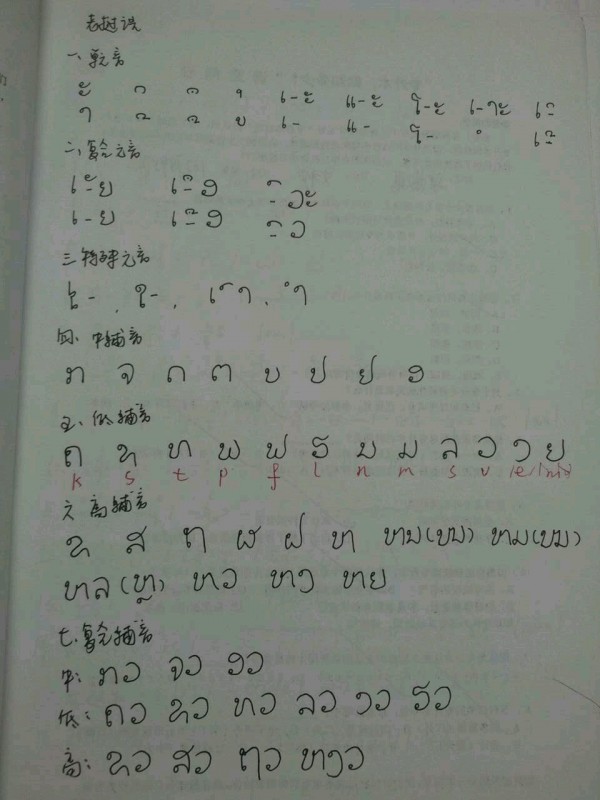 老挝语
一、单元音
-ະ -ິ -ຶ -ຸ ເ-ະ ແ-ະ ໂ-ະ ເ-າະ ເ-ິ
-າ -ີ -ື -ູ ເ- ແ- ໂ- -ໍ ເ-ີ
二、复合元音
ເ-ັຍ ເ-ຶອ -ົວະ
ເ-ຍ ເ-ືອ -ົວ
三、特殊元音
ໄ-, ໃ-, ເ-ົາ, -ຳ
四、中辅音
ກ ຈ ດ ຕ ບ ປ ຢ ອ
五、低辅音
ຄ ຊ ທ ພ ຟ ຣ ນ ມ ລ ວ ງ ຍ
k s t p f l n m s v
六、高辅音
ຂ ສ ຖ ຜ ຝ ຫ ຫນ(ໜ) ຫມ(ໝ)
ຫລ(ຫຼ) ຫວ ຫງ ຫຍ
七、复合辅音
中: ກວ ຈວ ອວ
低: ຄວ ຊວ ທວ ລວ ງວ ຣວ
高: ຂວ ສວ ຖວ ຫງວ